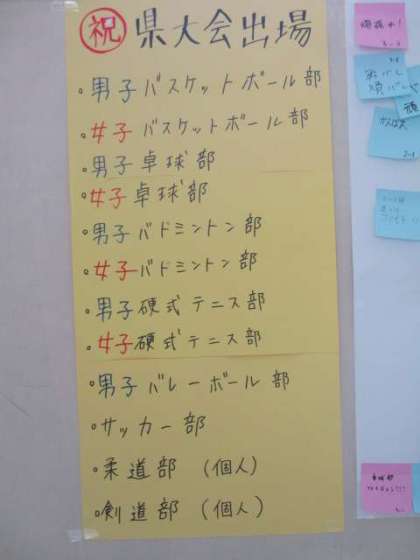 祝 県大会出場
・男子バスケットボール部
・女子バスケットボール部
・男子卓球部
・女子卓球部
・男子バドミントン部
・女子バドミントン部
・男子硬式テニス部
・女子硬式テニス部
・男子バレーボール部
・サッカー部
・柔道部 (個人)
・剣道部 (個人)